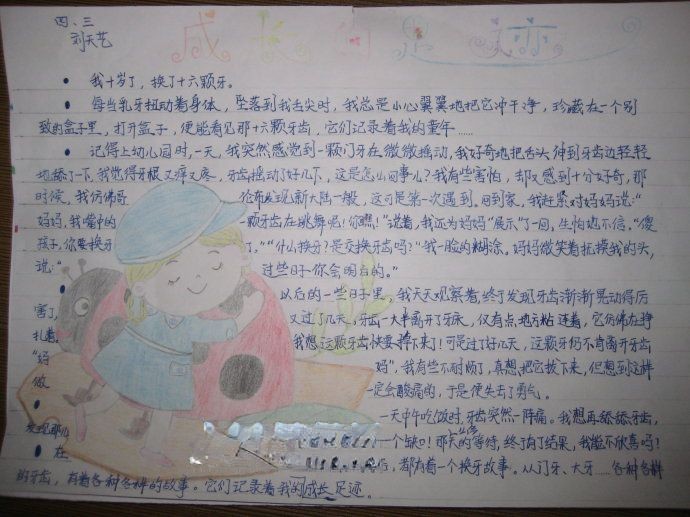 四、三
刘天艺
成长的足迹
• 我十岁了，换了十六颗牙。
• 每当乳牙扭动着身体，坠落到我舌尖时，我总是小心翼翼地把它冲干净，珍藏在一个别
致的盒子里，打开盒子，便能看见那十六颗牙齿，它们记录着我的童年……
• 记得上幼儿园时，一天，我突然感觉到一颗门牙在微微摇动，我好奇地把舌头伸到牙齿边轻轻
地舔了一下，我觉得牙根又痒又疼，牙齿摇动了好几下，这是怎么回事儿？我有些害怕，却又感到十分好奇，那
时候，我仿佛哥伦布发现新大陆一般，这可是第一次遇到，回到家，我赶紧对妈妈说：“
妈妈，我嘴中的一颗牙齿在跳舞呢！你瞧！”说着，我还为妈妈“展示”了一回，生怕她不信。“傻
孩子，你要换牙了。”“什么换牙？是交换牙齿吗？”我一脸的糊涂，妈妈微笑着抚摸我的头，
说：“过些日子你会明白的。”
• 以后的一些日子里，我天天观察着，终于发现牙齿渐渐晃动得厉
害了，又过了几天，牙齿一大半离开了牙床，仅有点地方粘连着，它仿佛在挣
扎着。我想这颗牙齿快要掉下来了！可是过了好几天，这颗牙仍不肯离开牙齿
“妈妈”，我有些不耐烦了，真想把它拔下来，但想到这样
做一定会酸痛的，于是便失去了勇气。
• 一天中午吃饭时，牙齿突然一阵痛。我想再舔舔牙齿，
发现那儿一个缺口！那天的等待，终于有了结果，我能不欣喜吗！
• 在后，都有着一个换牙故事。从门牙、大牙……各种各样
的牙齿，有着各种各样的故事。它们记录着我的成长足迹。